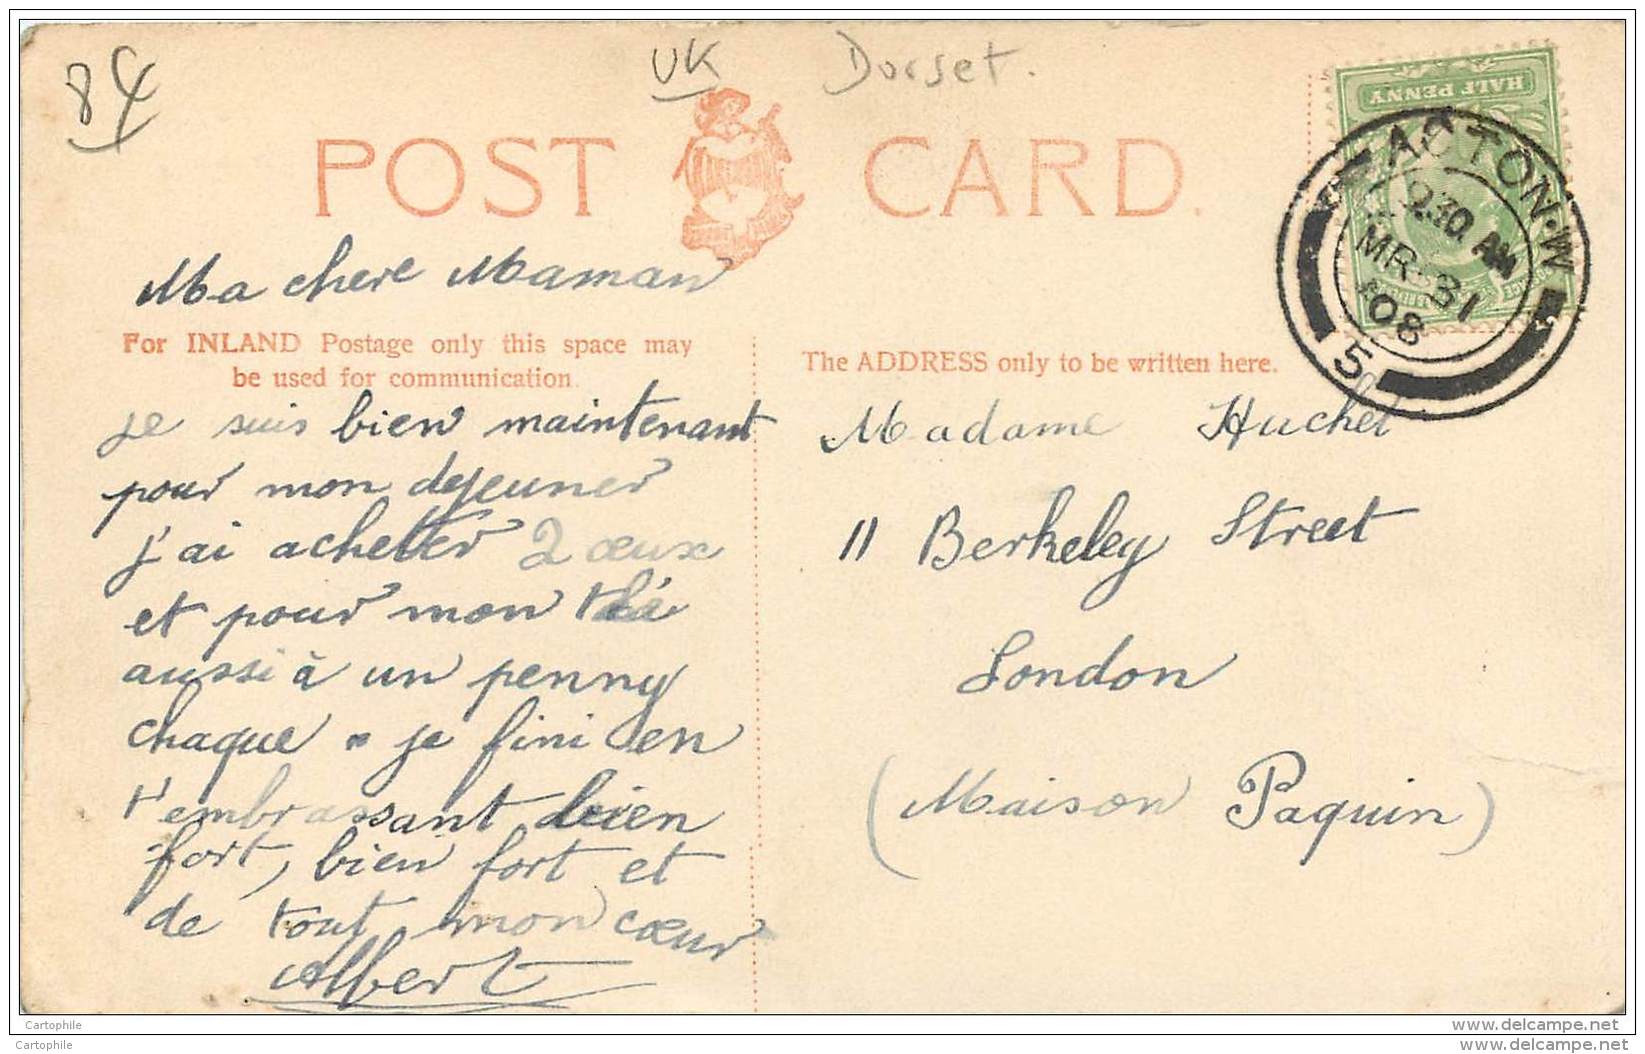 84
UK
Dorset.
POST CARD.
HALF PENNY
ACTON·W
9.30 AM
MR 31
08
5
Ma chere Maman
For INLAND Postage only this space may
be used for communication.
The ADDRESS only to be written here.
je suis bien maintenant
pour mon dejeuner
j'ai achetter 2 œux
et pour mon thé
aussi à un penny
chaque. je fini en
t'embrassant bien
fort, bien fort et
de tout mon cœur
Albert
Madame Huchet
11 Berkeley Street
London
(Maison Paquin)
Cartophile
www.delcampe.net
Cartophile
www.delcampe.net